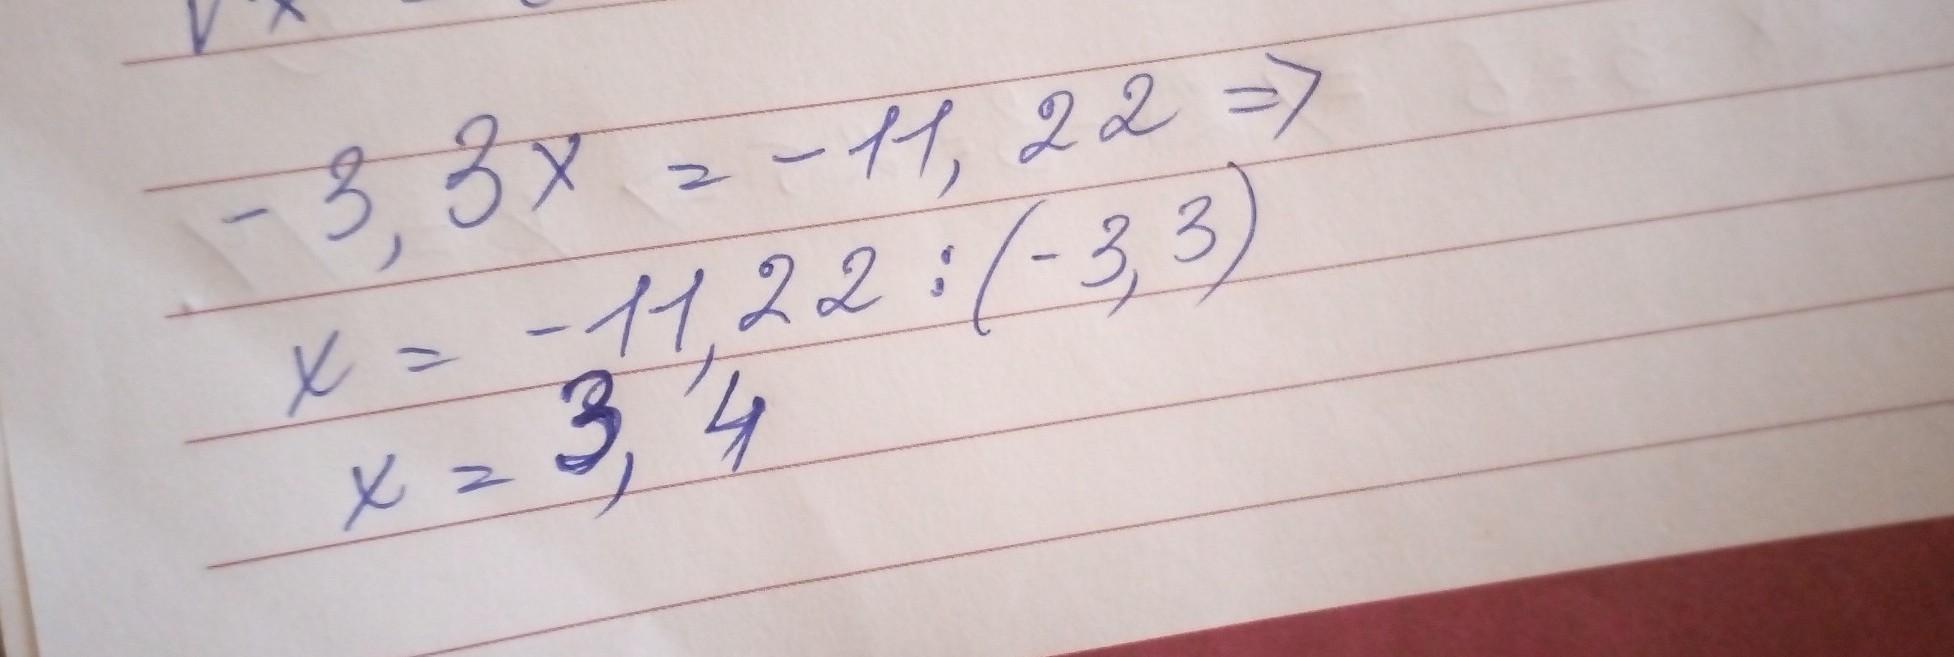 -3,3x = -11,22 =>
x = -11,22 : (-3,3)
x = 3,4